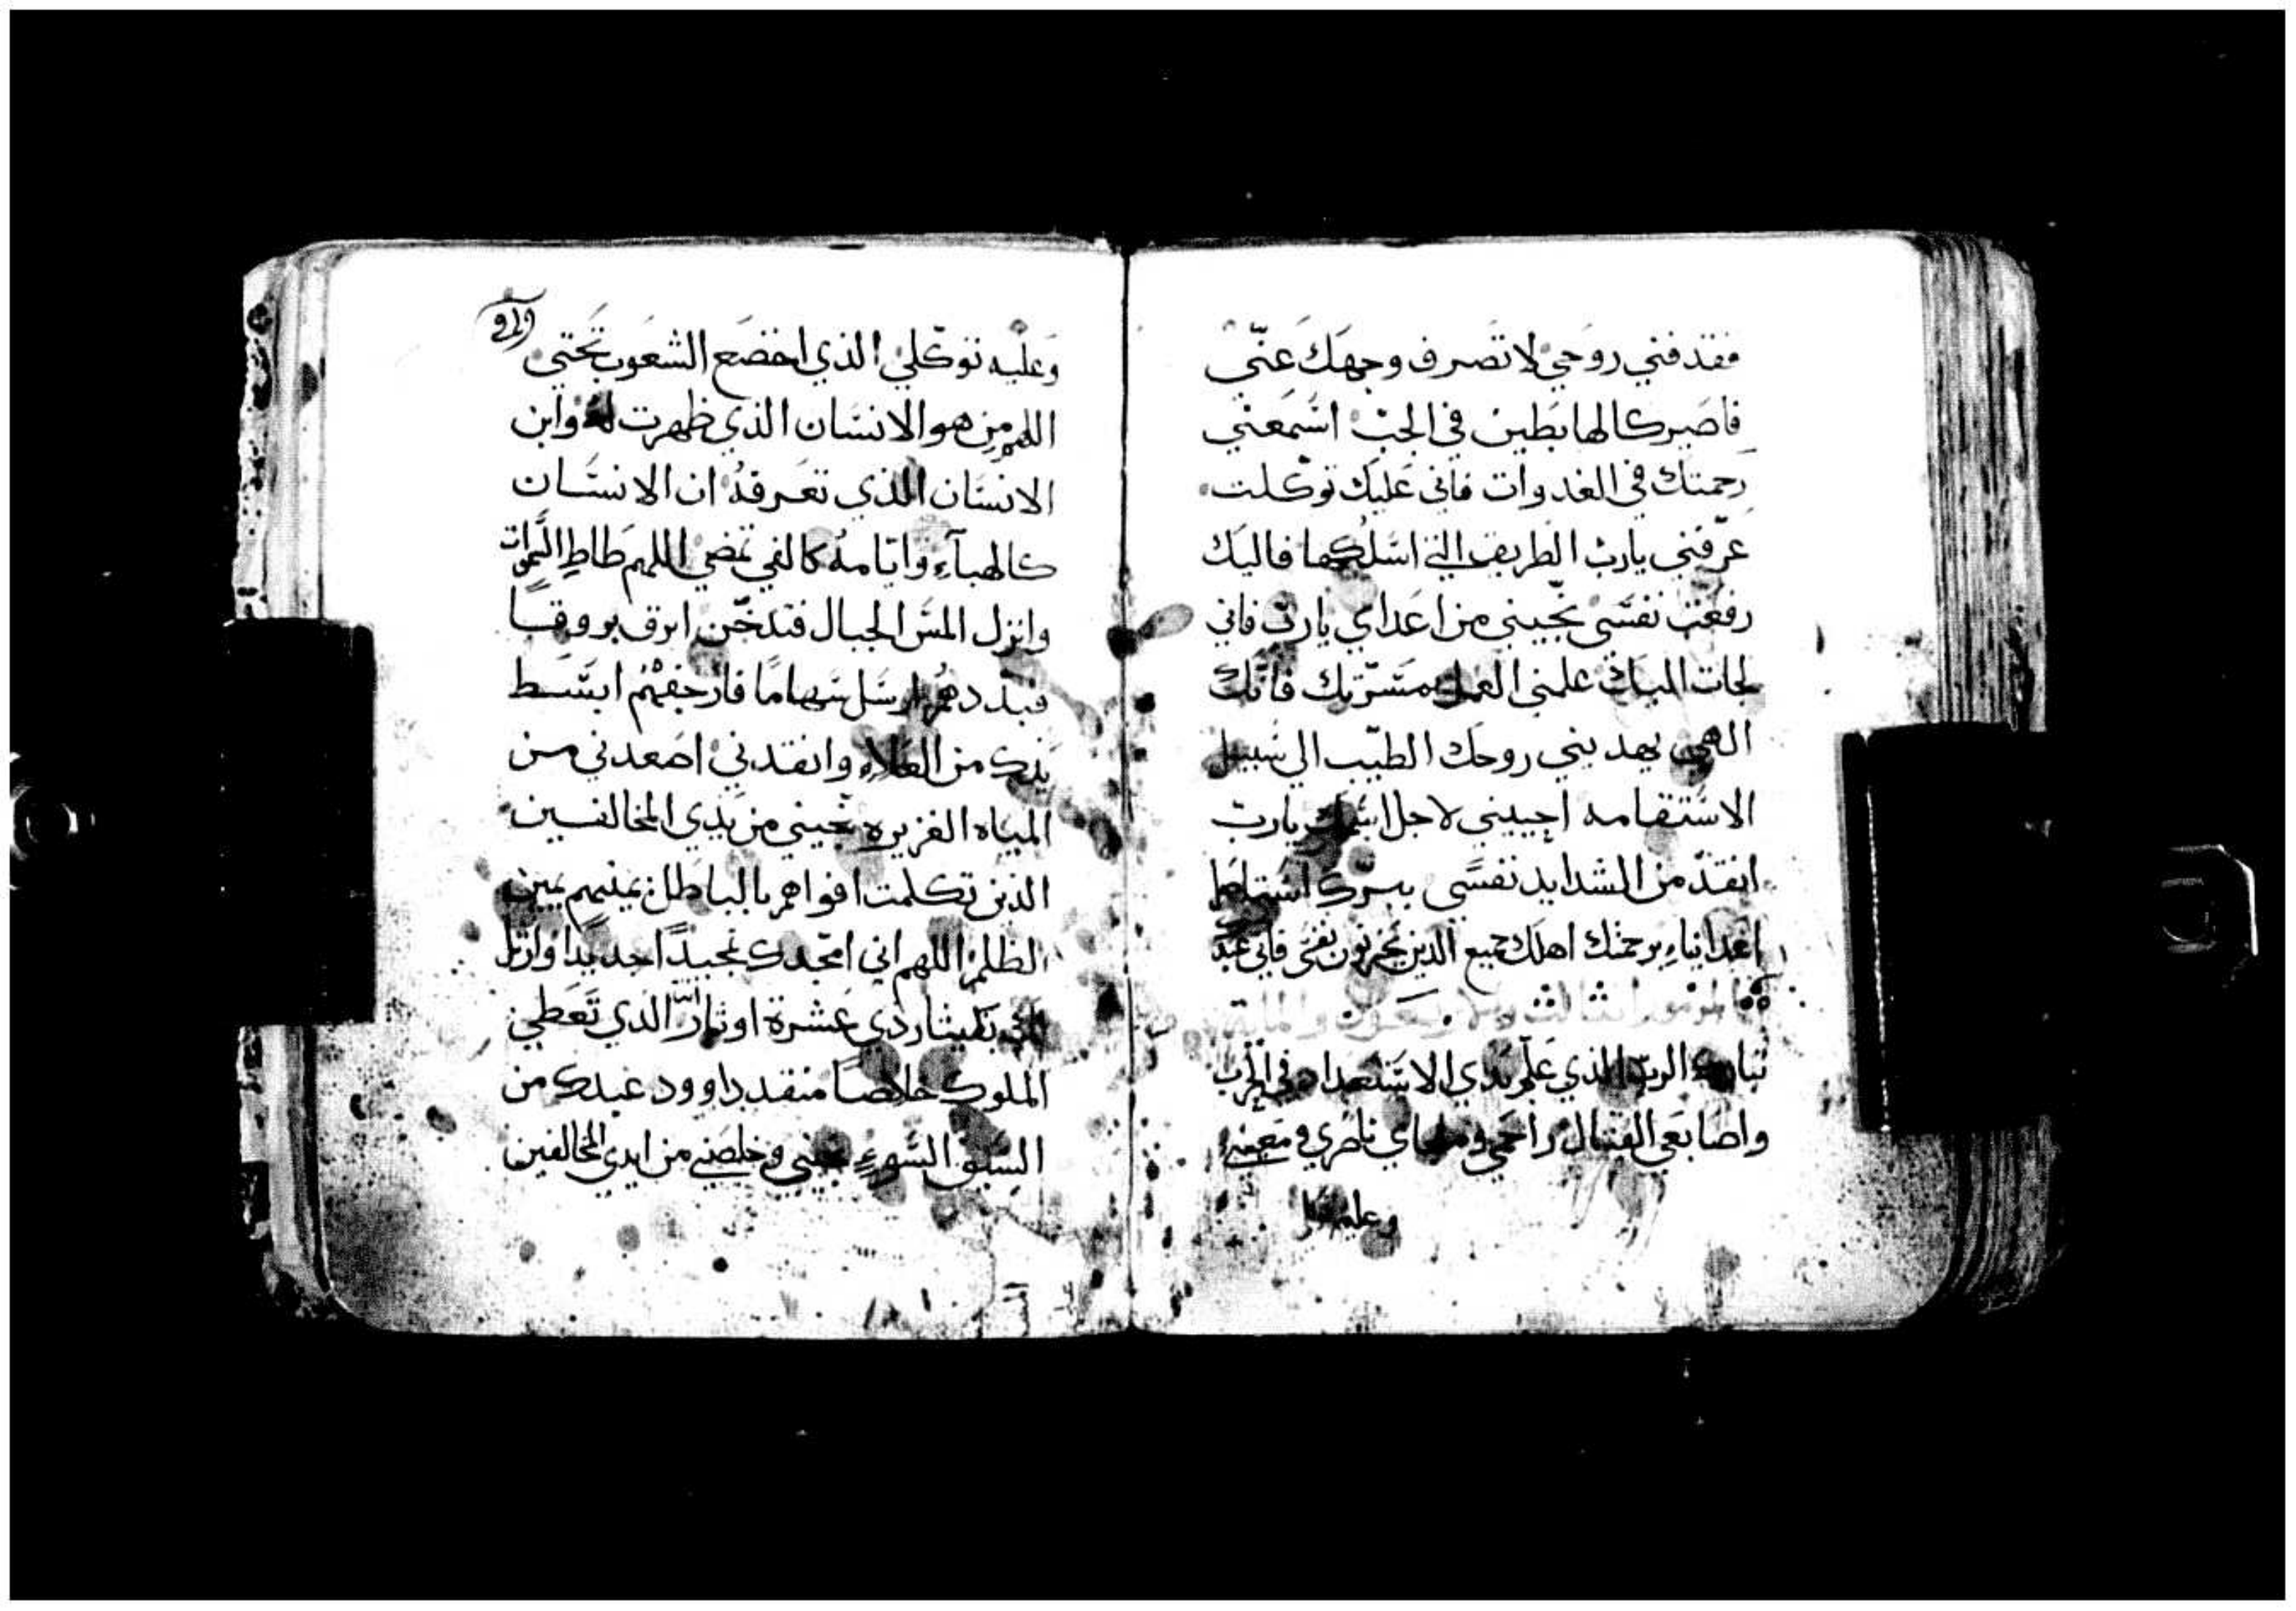 فقد فني روحي لا تصرف وجهك عنّي
فاصير كالهابطين في الجبّ اسمعني
رحمتك في الغدوات فاني عليك توكلت
عرّفني يارب الطريق التي اسلكها فاليك
رفعت نفسي نجّيني من اعداي يارب فاني
لجات اليك علمني العمل بمسرّتك فانّك
الهي يهديني روحك الطيّب الي سبيل
الاستقامه احييني لاجل اسمك يارب
انقذ من الشدايد نفسي ببرك
اعداياء برحمتك اهلك جميع الذين يحزنون نفسي فاني عبدك
المزمور الثالث والاربعون والمايه
تبارك الرب الذي علم يدي الاستعداد في الحرب
واصابعي القتال راحمي وملجاي ناصري
وعليه
وعليه توكّلي الذي اخضع الشعوب تحتي
اللهم من هو الانسان الذي ظهرت له وابن
الانسان الذي تعرفهُ ان الانسان
كالهبآء وايّامهُ كالفي تمضي اللهم طاطِ السموات
وانزل المس الجبال فتدخّن ابرق بروقاً
فبددهم ارسل سهامًا فارجفهُم ابسط
يدك من العلاء وانقدني اصعدني من
المياه الغزيره نجّيني من يدي المخالفين
الذين تكلمت افواههم بالباطل يمينهم يمين
الظلم اللهم اني امجّدك تمجيداً جديداً وارتل
لك بقيثار ذي عشرة اوتار الذي تعطي
الملوك خلاصاً منقد داوود عبدك من
السيف السوء نجّني وخلصني من ايدي المخالفين